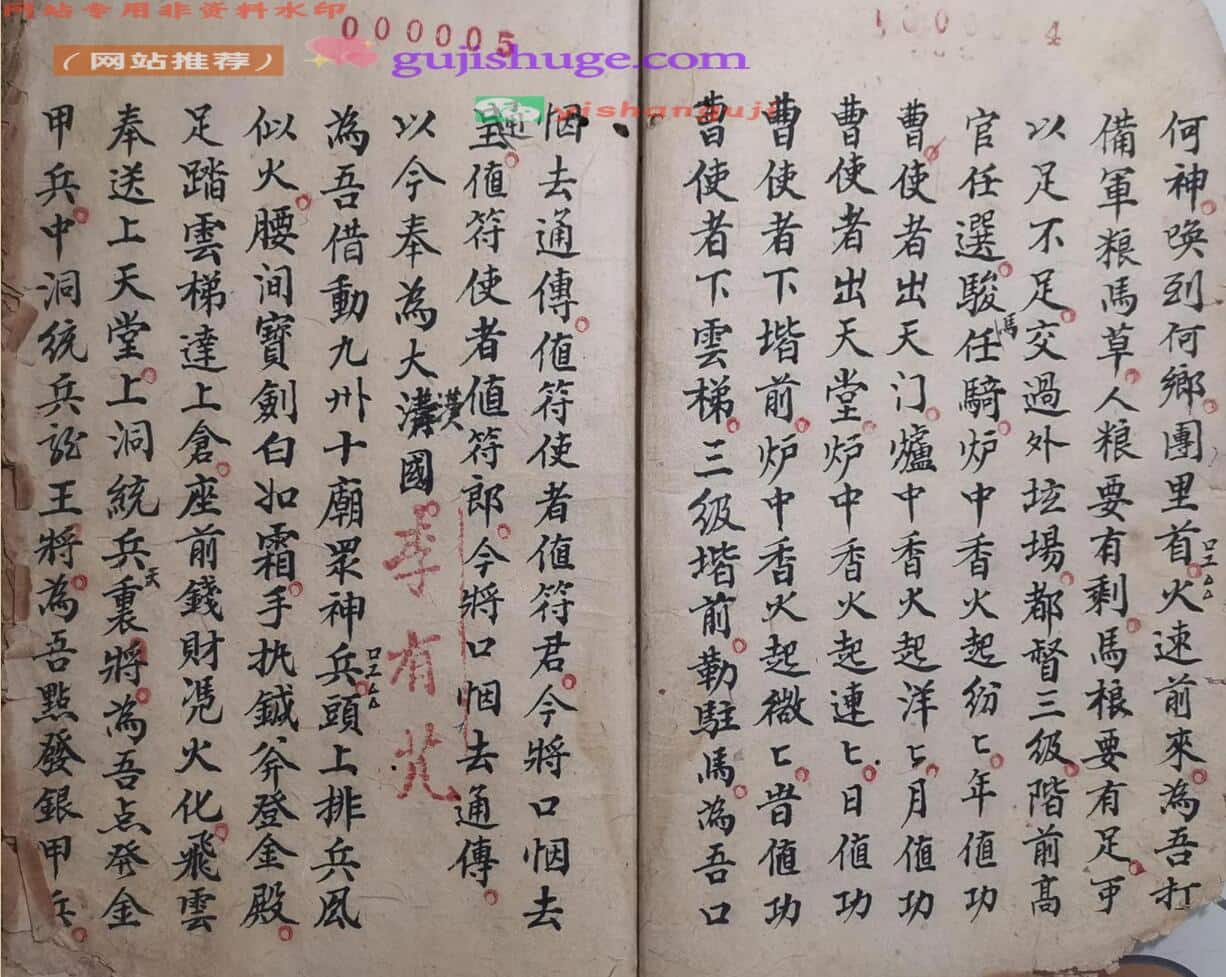 网站专用非资料水印
（网站推荐）
gujishuge.com
yishanguji
000005
4
何神唤到何鄉團里首火速前來為吾打
備軍粮馬草人粮要有剩馬粮要有足
以足不足交過外坛場都督三級階前高
官任選駿馬任騎炉中香火起紛〻年值功
曹使者出天门爐中香火起洋〻月值功
曹使者出天堂炉中香火起連〻日值功
曹使者下堦前炉中香火起微〻時值功
曹使者下雲梯三級堦前勒駐馬為吾口
悃去通傳值符使者值符君今將口悃去
值符使者值符郎今將口悃去通傳
以今奉為大漢國李有
為吾借動九州十廟眾神兵頭上排兵風
似火腰间寶劍白如霜手执鉞斧登金殿
足踏雲梯達上倉座前錢財凴火化飛雲
奉送上天堂上洞統兵天裏將為吾点発金
甲兵中洞统兵龍王將為吾點發銀甲兵